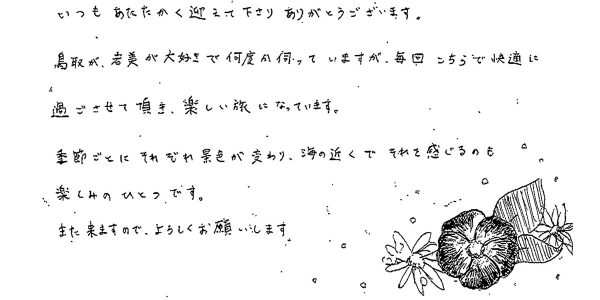 いつも あたたかく 迎えて 下さり ありがとうございます。
鳥取が、岩美が大好きで 何度か伺って いますが、毎回 こちらで快適に
過ごさせて 頂き、楽しい旅になっています。
季節ごとに それぞれ景色が変わり、海の近くで それを感じるのも
楽しみのひとつです。
また来ますので、よろしくお願いします。